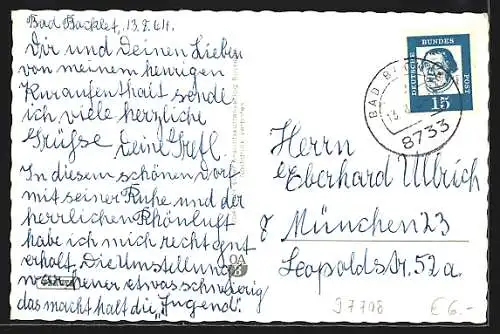 Bad Bocklet, 13.8.64.
Dir und Deinen Lieben
von meinem heurigen
Kuraufenthalt sende
ich viele herzliche
Grüsse deine Gretl.
In diesem schönen Dorf
mit seiner Ruhe und der
herrlichen Röhnluft
habe ich mich recht gut
erholt. Die Umstellung
etwas schwierig
das macht halt die „Jugend".
DEUTSCHE BUNDES POST
15
BAD
8733
Herrn
Eberhard Ullrich
8 München 23
Leopoldstr. 52a.
OA
J7708
€ 6.-